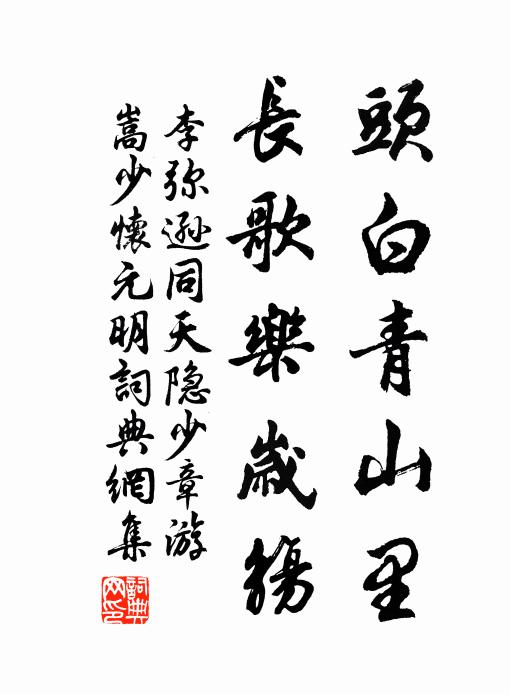 頭白青山里
長歌樂歲觴
李弥遜同天隐少章游
嵩少懷元明詞典網集
詞典网印